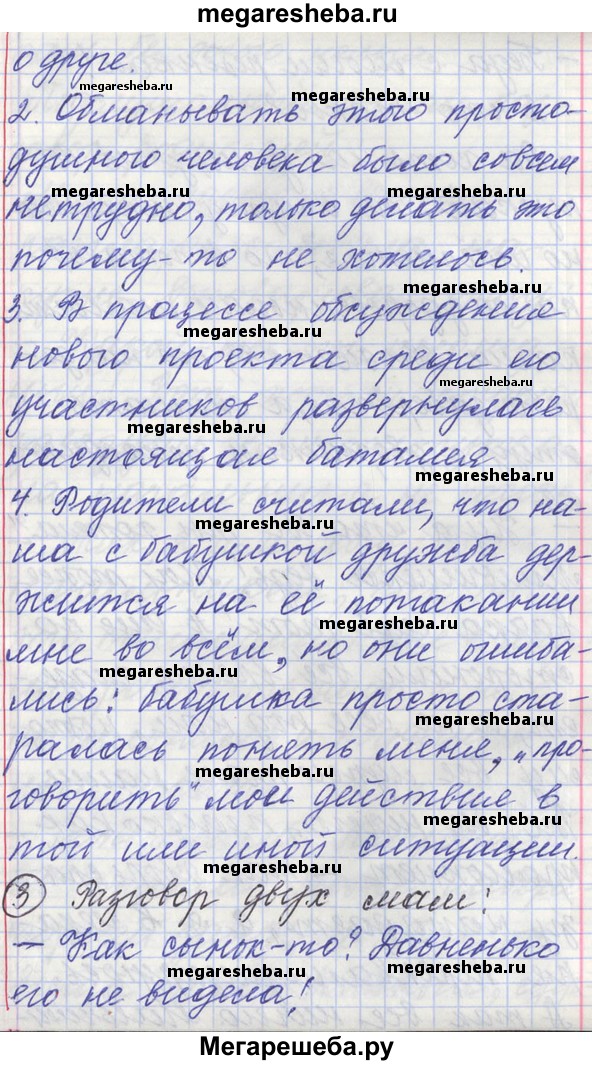 megaresheba.ru
о друге.
megaresheba.ru
megaresheba.ru
2. Обманывать этого просто-
душного человека было совсем
megaresheba.ru
megaresheba.ru
нетрудно, только делать это
почему-то не хотелось.
megaresheba.ru
3. В процессе обсуждения
megaresheba.ru
нового проекта среди его
megaresheba.ru
участников развернулась
megaresheba.ru
настоящая баталия
megaresheba.ru
4. Родители считали, что на-
megaresheba.ru
ша с бабушкой дружба дер-
megaresheba.ru
жится на её потакании
megaresheba.ru
мне во всём, но они ошиба-
megaresheba.ru
лись: бабушка просто ста-
megaresheba.ru
ралась понять меня, „про-
megaresheba.ru
говорить" мои действия в
megaresheba.ru
той или иной ситуации.
megaresheba.ru
3 Разговор двух мам:
— Как сынок-то? Давненько
megaresheba.ru
megaresheba.ru
его не видела!
Мегарешеба.ру